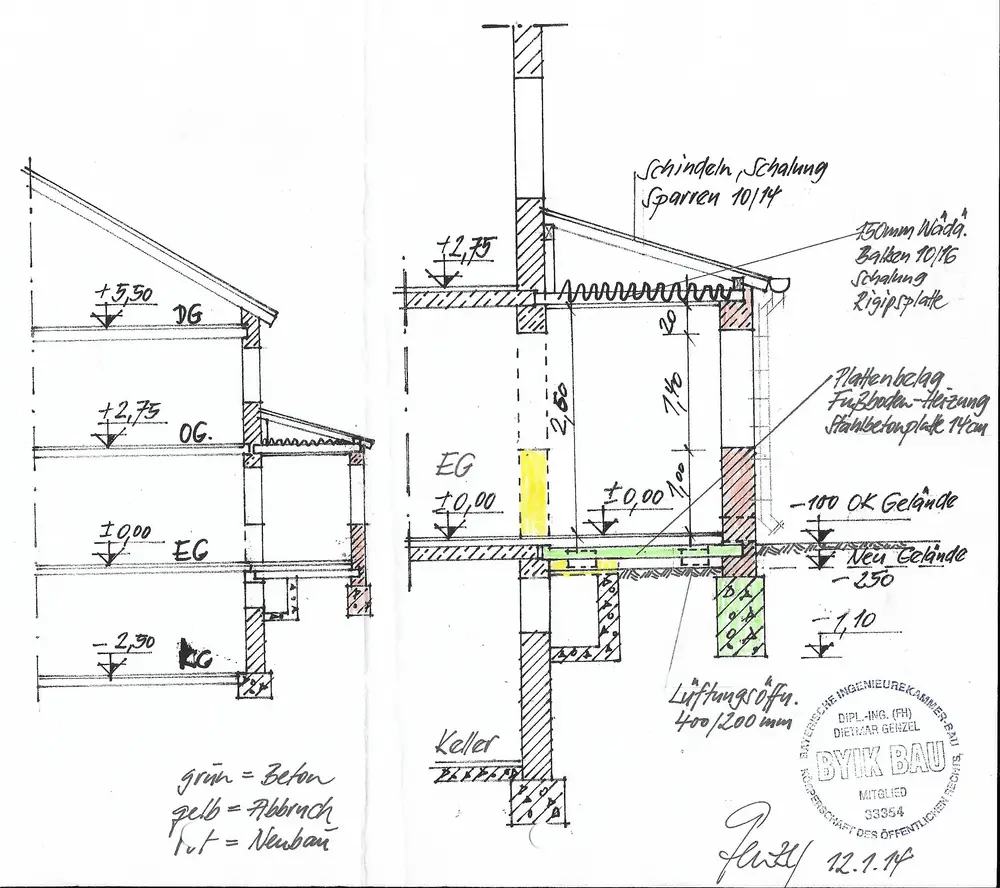 +5,50
DG
+2,75
OG.
±0,00
EG
-2,50
KG
grün = Beton
gelb = Abbruch
rot = Neubau
+2,75
Schindeln, Schalung
Sparren 10/14
150mm Wädä.
Balken 10/16
Schalung
Rigipsplatte
20
2,50
1,40
1,00
Plattenbelag
Fußboden-Heizung
Stahlbetonplatte 14cm
EG
±0,00
±0,00
-100 OK Gelände
Neu Gelände
-250
-1,10
Lüftungsöffn.
400/200mm
Keller
BAYERISCHE INGENIEUREKAMMER-BAU
DIPL.-ING. (FH)
DIETMAR GENZEL
BYIK BAU
MITGLIED
33354
KÖRPERSCHAFT DES ÖFFENTLICHEN RECHTS
12.1.14